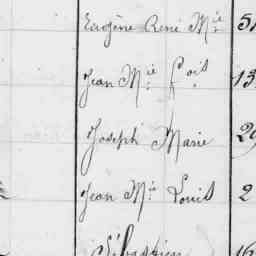 Eugène René Mie 51
Jean Mie fois 13
Joseph Marie 29
Jean Mie Louis 2
Sébastien 16